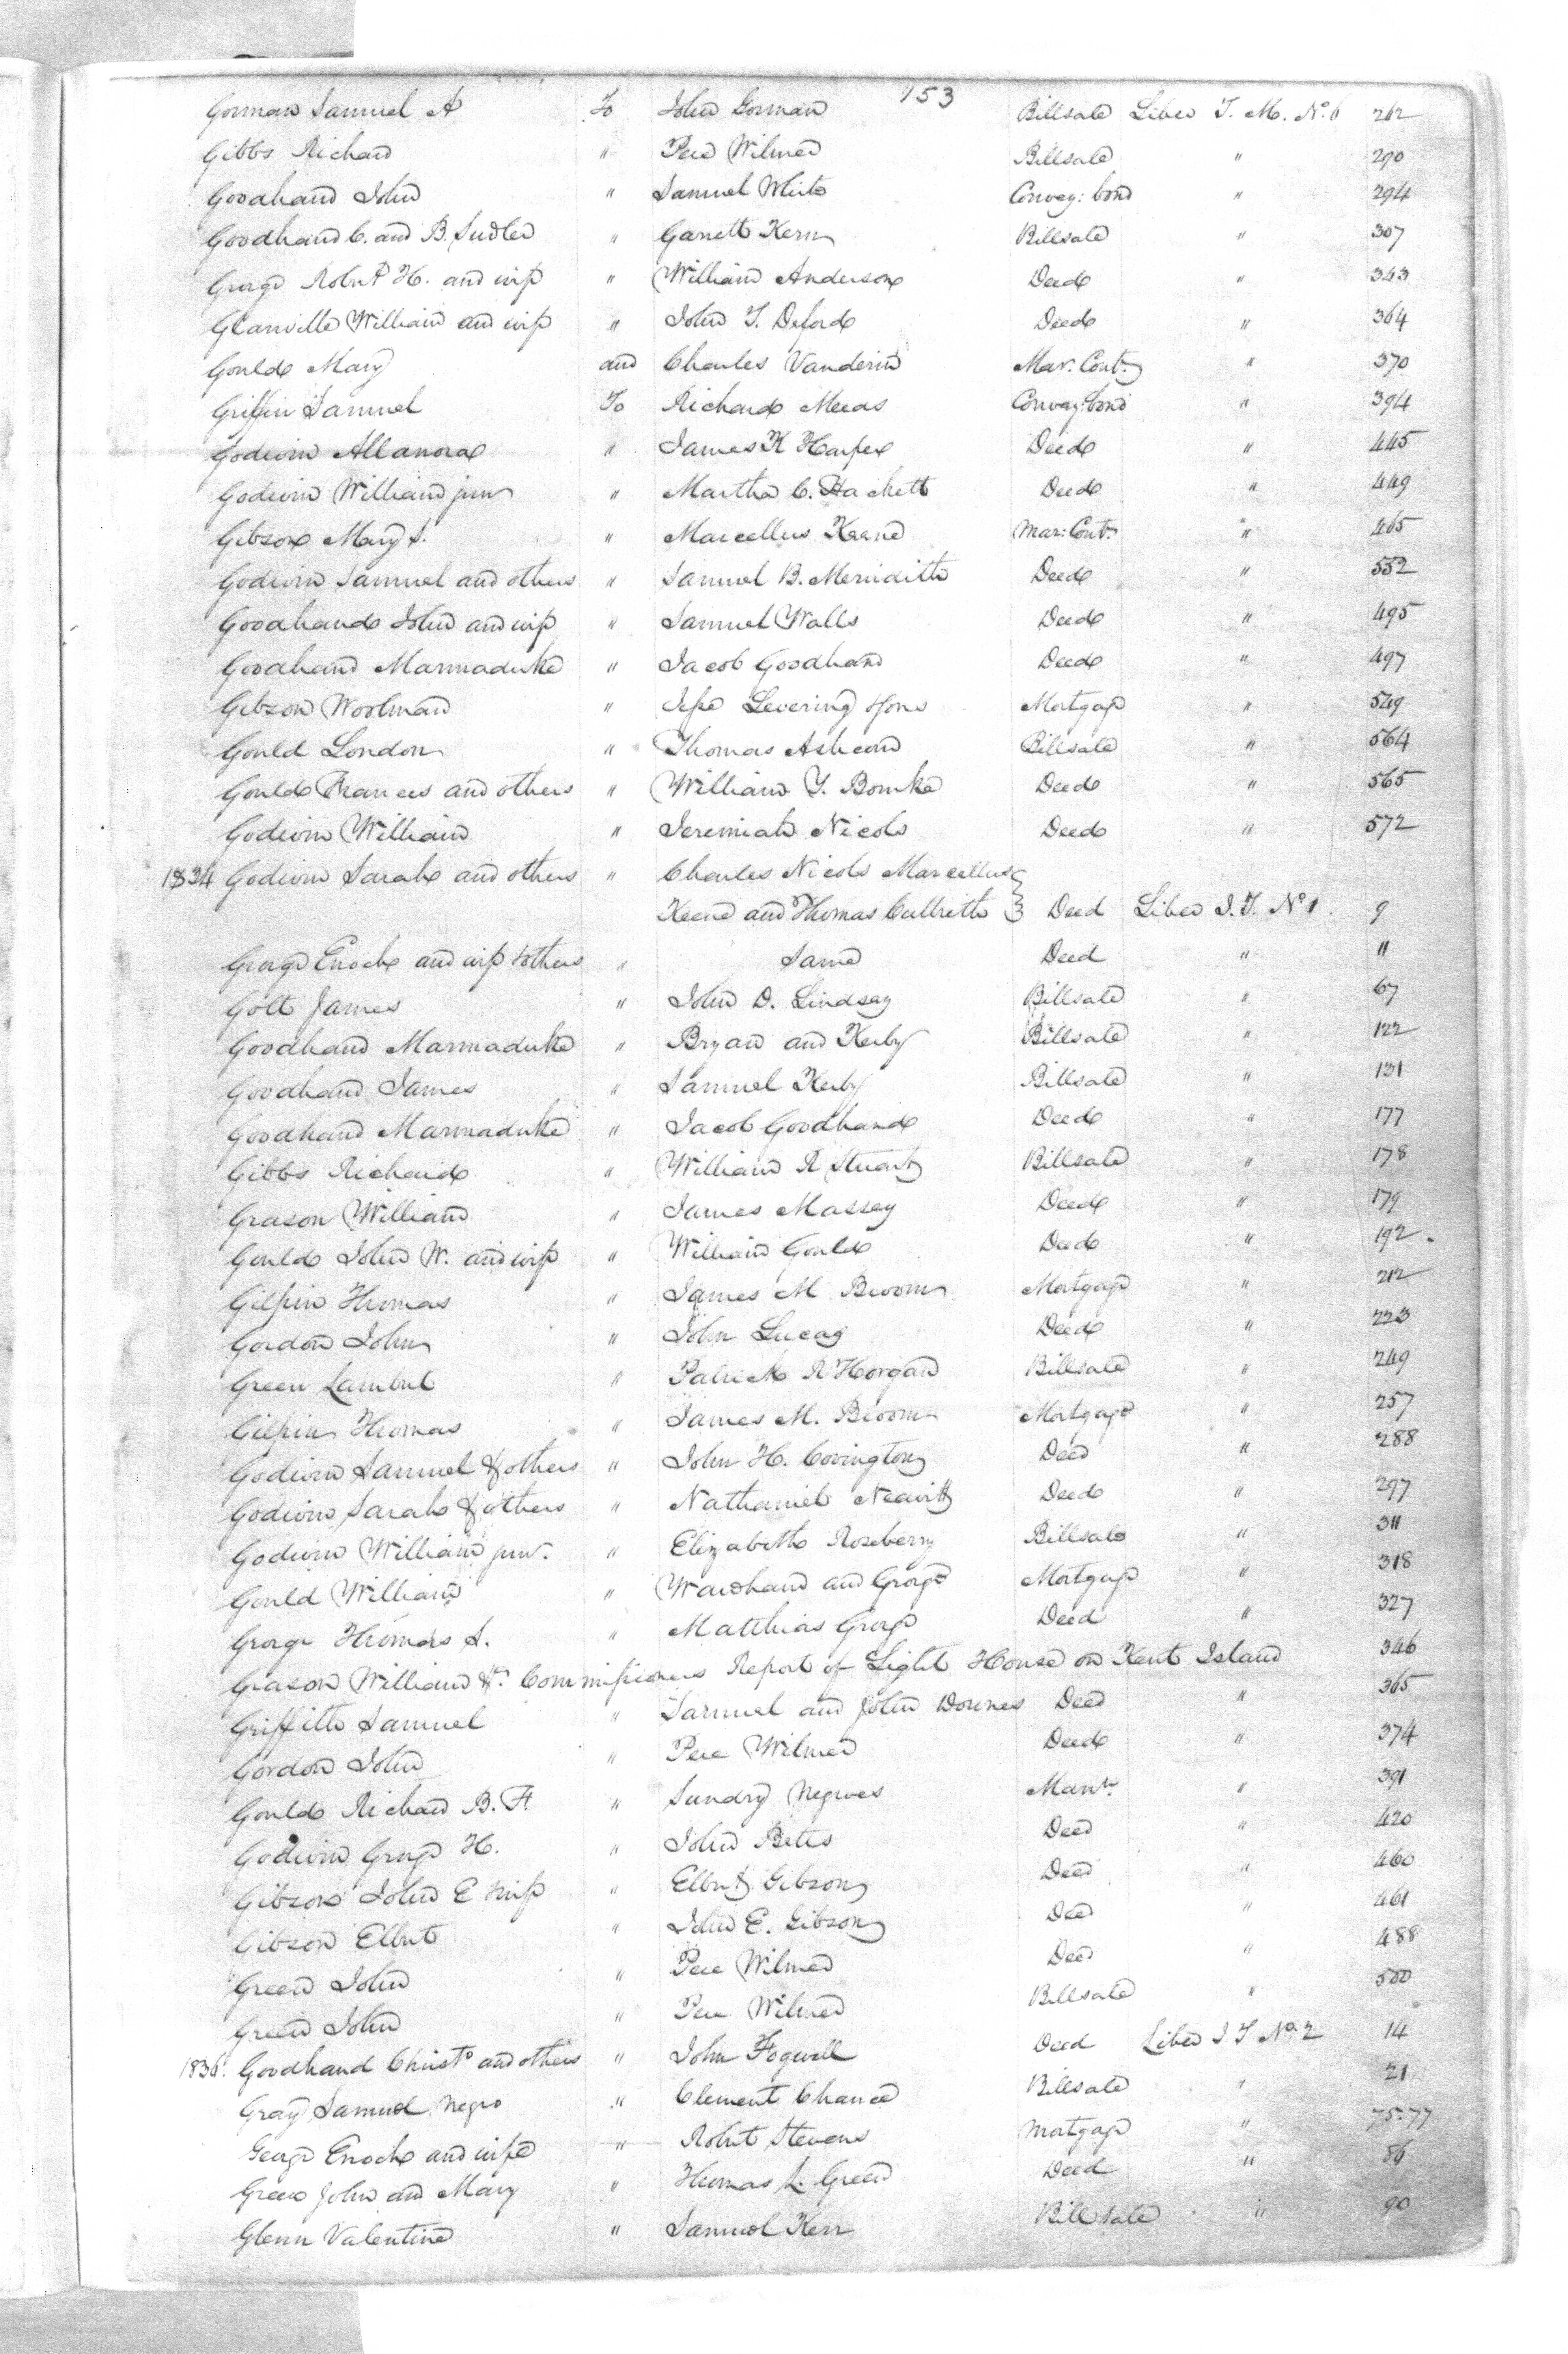 153
Gorman Samuel A To John Gorman Billsale Liber T. M. No. 6 262
Gibbs Richard " Pere Wilmer Billsale " 290
Goodhand John " Samuel White Convey: bond " 294
Goodhand C. and B. Sudler " Garrett Kern Billsale " 307
George Robert H. and wife " William Anderson Deed " 343
Glanville William and wife " John T. Deford Deed " 364
Gould Mary and Charles Vanderin Mar: Cont. " 370
Griffin Samuel To Richard Meeds Convey: bond " 394
Godwin Allanora " James K Harper Deed " 445
Godwin William junr " Martha C. Hackett Deed " 449
Gibson Mary S. " Marcellus Keene Mar: Cont. " 465
Godwin Samuel and others " Samuel B. Meriditth Deed " 552
Goodhand John and wife " Samuel Walls Deed " 495
Goodhand Marmaduke " Jacob Goodhand Deed " 497
Gibson Woolman " Jesse Levering & Sons Mortgage " 549
Gould London " Thomas Ashcom Billsale " 564
Gould Frances and others " William Y. Bourke Deed " 565
Godwin William " Jeremiah Nicols Deed " 572
1834 Godwin Sarah and others " Charles Nicols Marcellus
Keene and Thomas Culbreth } Deed Liber J. T. No 1. 9
George Enoch and wife & others " Same Deed " 11
Golt James " John D. Lindsay Billsale " 67
Goodhand Marmaduke " Bryan and Kerby Billsale " 122
Goodhand James " Samuel Kerby Billsale " 131
Goodhand Marmaduke " Jacob Goodhand Deed " 177
Gibbs Richard " William R Stuart Billsale " 178
Grason William " James Massey Deed " 179
Gould John W. and wife " William Gould Deed " 192
Gilpin Thomas " James M Broom Mortgage " 212
Gordon John " John Lucas Deed " 223
Green Lambert " Patrick R Horgan Billsale " 249
Gilpin Thomas " James M. Broom Mortgage " 257
Godwin Samuel & others " John H. Covington Deed " 288
Godwin Sarah & others " Nathaniel Neavitt Deed " 297
Godwin William junr. " Elizabeth Roseberry Billsale " 311
Gould William " Wardhand and George Mortgage " 318
George Thomas S. " Matthias George Deed " 327
Grason William &c. Commissioners Report of Light House on Kent Island 346
Griffith Samuel " Samuel and John Downes Deed " 365
Gordon John " Pere Wilmer Deed " 374
Gould Richard B. F. " Sundry Negroes Mann. " 391
Godwin George H. " John Betts Deed " 420
Gibson John E & wife " Elbert Gibson Deed " 460
Gibson Elbert " John E. Gibson Deed " 461
Green John " Pere Wilmer Deed " 488
Green John " Pere Wilmer Billsale " 500
1836. Goodhand Christo and others " John Fogwell Deed Liber J T No. 2 14
Gray Samuel Negro " Clement Chance Billsale " 21
George Enoch and wife " Robert Stevens Mortgage " 75.77
Green John and Mary " Thomas L. Green Deed " 86
Glenn Valentine " Samuel Kerr Bill sale " 90